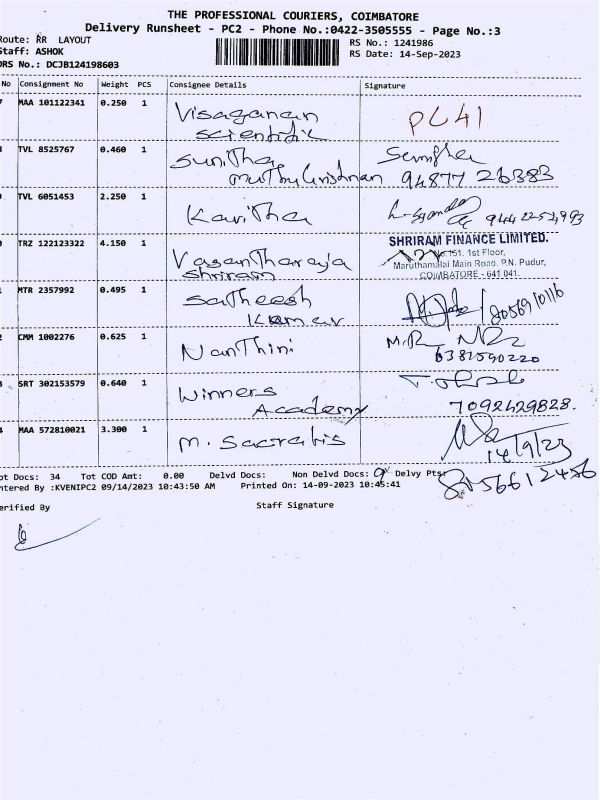 THE PROFESSIONAL COURIERS, COIMBATORE
Delivery Runsheet - PC2 - Phone No.:0422-3505555 - Page No.:3
Route: RR LAYOUT
RS No.: 1241986
Staff: ASHOK
RS Date: 14-Sep-2023
DRS No.: DCJB124198603
No Consignment No Weight PCS Consignee Details Signature
7 MAA 101122341 0.250 1 Visaganan
scientific
PC41
TVL 8525767 0.460 1 Sunitha
muthukrishnan
94877 26383
TVL 6051453 2.250 1 Kavitha
94422-52,993
TRZ 122123322 4.150 1 Vasantharaja
shriram
SHRIRAM FINANCE LIMITED.
No.151, 1st Floor,
Maruthamalai Main Road, P.N. Pudur,
COIMBATORE - 641 041.
MTR 2357992 0.495 1 Satheesh
Kumar
8056910116
CMM 1002276 0.625 1 Nanthini
6381590220
SRT 302153579 0.640 1 Winners
Academy
7092429828.
MAA 572810021 3.300 1 M.
14/9/23
Tot Docs: 34 Tot COD Amt: 0.00 Delvd Docs: Non Delvd Docs: Delvy Pts:
Entered By :KVENIPC2 09/14/2023 10:43:50 AM Printed On: 14-09-2023 10:45:41
56612456
Verified By Staff Signature